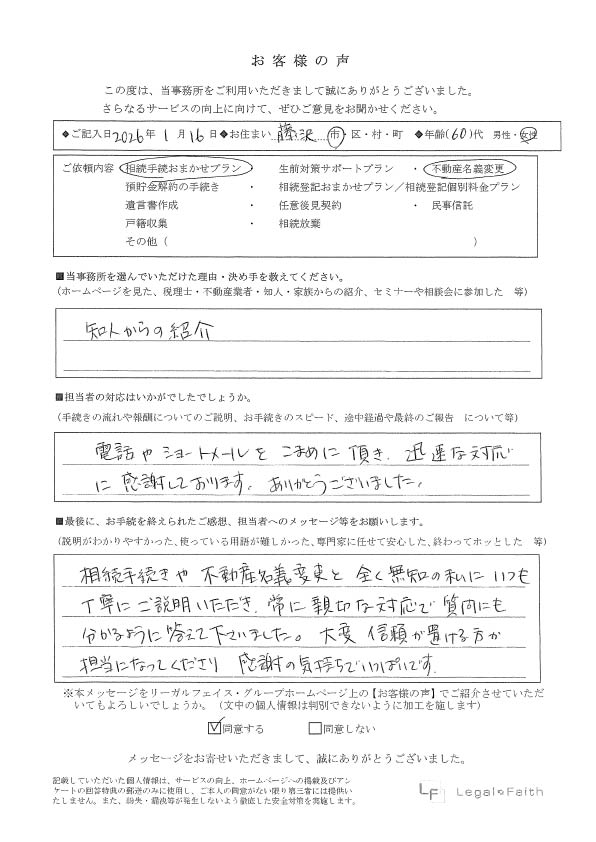 お客様の声
この度は、当事務所をご利用いただきまして誠にありがとうございました。
さらなるサービスの向上に向けて、ぜひご意見をお聞かせください。
◆ご記入日2026年1月16日◆お住まい 藤沢 市・区・村・町 ◆年齢(60)代 男性・女性
ご依頼内容 相続手続おまかせプラン ・ 生前対策サポートプラン ・ 不動産名義変更
預貯金解約の手続き ・ 相続登記おまかせプラン/相続登記個別料金プラン
遺言書作成 ・ 任意後見契約 ・ 民事信託
戸籍収集 ・ 相続放棄
その他( )
■当事務所を選んでいただけた理由・決め手を教えてください。
(ホームページを見た、税理士・不動産業者・知人・家族からの紹介、セミナーや相談会に参加した 等)
知人からの紹介
■担当者の対応はいかがでしたでしょうか。
(手続きの流れや報酬についてのご説明、お手続きのスピード、途中経過や最終のご報告 について等)
電話やショートメールを こまめに頂き、迅速な対応
に感謝しております。ありがとうございました。
■最後に、お手続を終えられたご感想、担当者へのメッセージ等をお願いします。
(説明がわかりやすかった、使っている用語が難しかった、専門家に任せて安心した、終わってホッとした 等)
相続手続きや不動産名義変更と全く無知の私にいつも
丁寧にご説明いただき、常に親切な対応で質問にも
分かるように答えて下さいました。大変信頼が置ける方が
担当になってくださり 感謝の気持ちでいっぱいです。
※本メッセージをリーガルフェイス・グループホームページ上の【お客様の声】でご紹介させていただ
いてもよろしいでしょうか。(文中の個人情報は判別できないように加工を施します)
☑同意する □同意しない
メッセージをお寄せいただきまして、誠にありがとうございました。
記載していただいた個人情報は、サービスの向上、ホームページへの掲載及びアン
ケートの回答特典の郵送のみに使用し、ご本人の同意がない限り第三者には提供い
たしません。また、紛失・漏洩等が発生しないよう徹底した安全対策を実施します。
LF Legal Faith